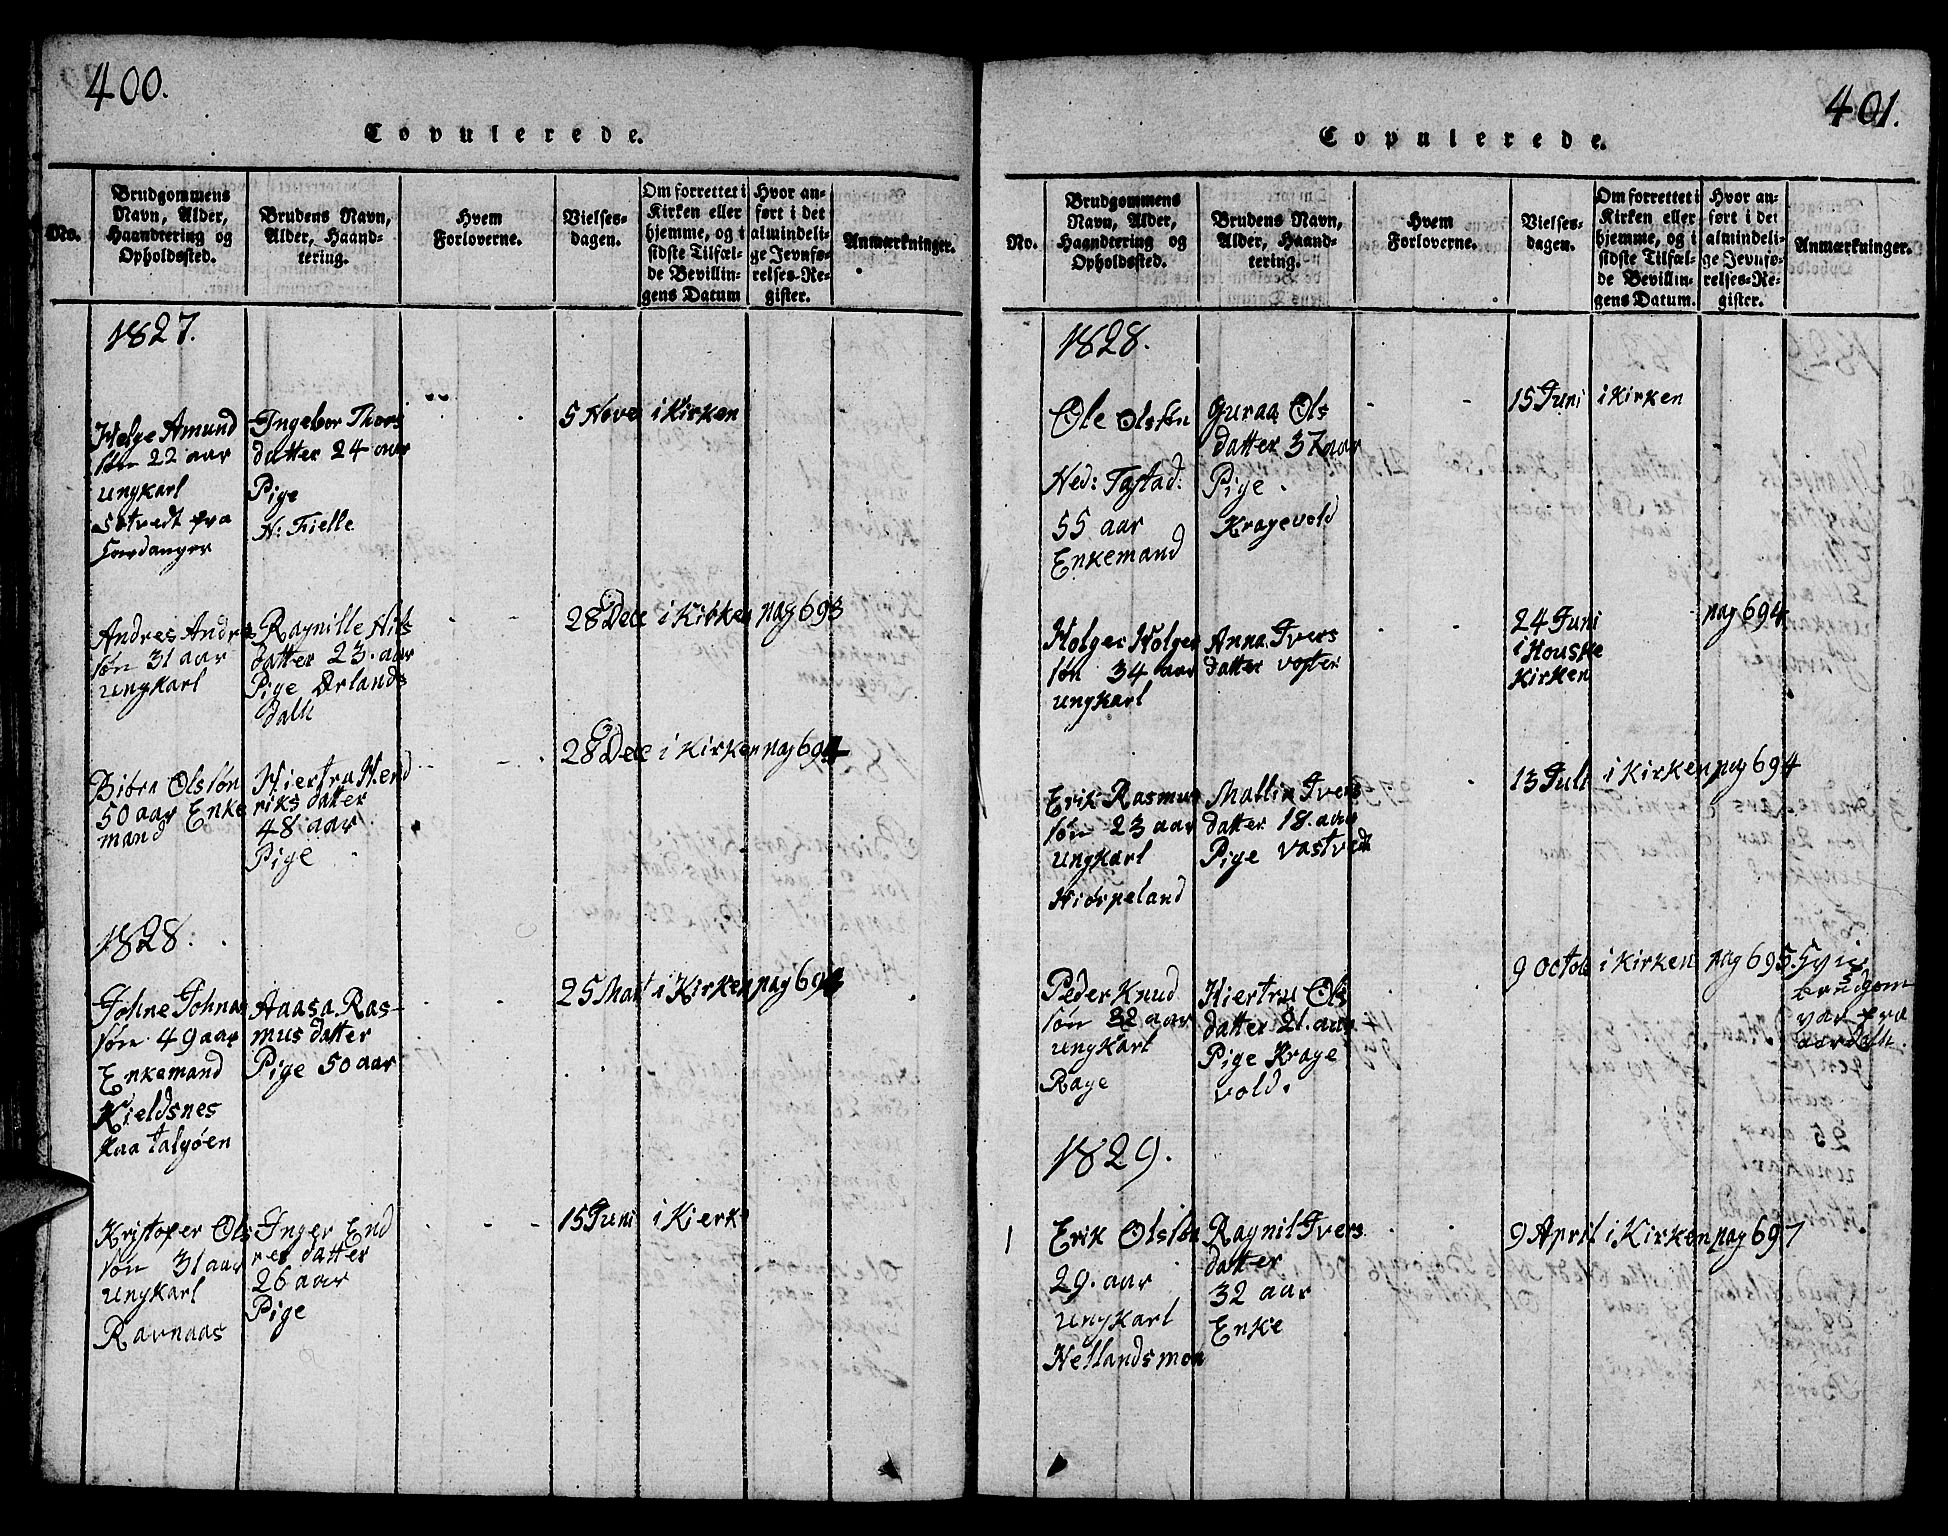 400.
Copulerede.
No.
Brudgommens
Navn, Alder,
Haandtering og
Opholdssted.
Brudens Navn,
Alder, Haand-
tering.
Hvem
Forloverne.
Vielses-
dagen.
Om forrettet i
Kirken eller
hjemme, og i
sidste Tilfæl-
de Bevillin-
gens Datum
Hvor an-
ført i det
almindeli-
ge Jevnfø-
relses-Re-
gister.
Anmærkninger.
1827.
Helge Amund
søn 22 aar
ungkarl
fra
Ingebor Thors
datter 24 aar
Pige
N: Tielle
5 Nove
i Kirken
Andres Andre
søn 31 aar
ungkarl
Ragnille Nils
datter 23. aar
Pige Ørlands
dall
28 Dece
i Kirken
pag 693
Biørn Olsøn
50 aar Enke
mand
Hiertru Hend
riks datter
48 aar
Pige
28 Dece
i Kirken
pag 694
1828.
Johne Johna
søn 49 aar
Enkemand
Kieldsnes
paa Talgøen
Aasa Ras-
mus datter
Pige 50 aar
25 Mart
i Kirken
pag
Kristofer Ols
søn 31 aar
ungkarl
Ravnaas
Inger End
res datter
26 aar
Pige
15 Juni
i Kierk
401.
Copulerede.
No.
Brudgommens
Navn, Alder,
Haandtering og
Opholdssted.
Brudens Navn,
Alder, Haand-
tering.
Hvem
Forloverne.
Vielses-
dagen.
Om forrettet i
Kirken eller
hjemme, og i
sidste Tilfæl-
de Bevillin-
gens Datum.
Hvor an-
ført i det
almindeli-
ge Jevnfø-
relses-Re-
gister.
Anmærkninger.
1828.
Ole Olsen
Ned: Tastad:
55 aar
Enkemand
Guraa Ols
datter 37 aar
Pige
Kragevold
15 Juni
i Kirken
Holger Holger
søn 34 aar
ungkarl
Anna Ivers
datter voster
24 Juni
i Houske
Kirken
pag 694
Erik Rasmus
søn 23 aar
ungkarl
Hiørpeland
Mallin Ivers
datter 18. aar
Pige Vastvedt
13 Juli
i Kirken
pag 694
Peder Knud
søn 32 aar
ungkarl
Rage
Hiertru Ols
datter 21. aar
Pige Krage
vold.
9 Octob
i Kirken
pag 695.
brudgom
var fra
1829.
1
Erik Olsøn
29. aar
ungkarl
Netlandsmon
Ragnil Ivers
datter
32 aar
Enke
9 April
i Kirken
pag 697